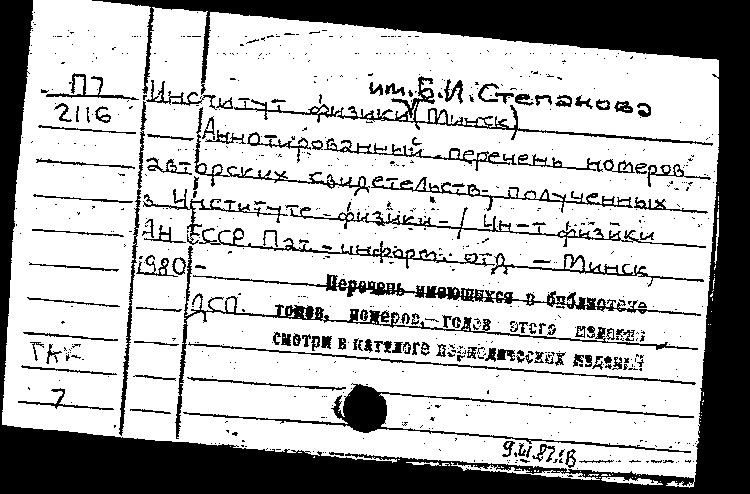 им. Б.И. Степанова
П7 Институт физики (Минск)
2116 Аннотированный перечень номеров
авторских свидетельств, полученных
в Институте физики / Ин-т физики
Ан БССР. Пат.-информ. отд. - Минск,
1980 -
Перечень имеющихся в библиотеке
ДСП. томов, номеров, годов этого издания
смотри в каталоге периодических изданий
7